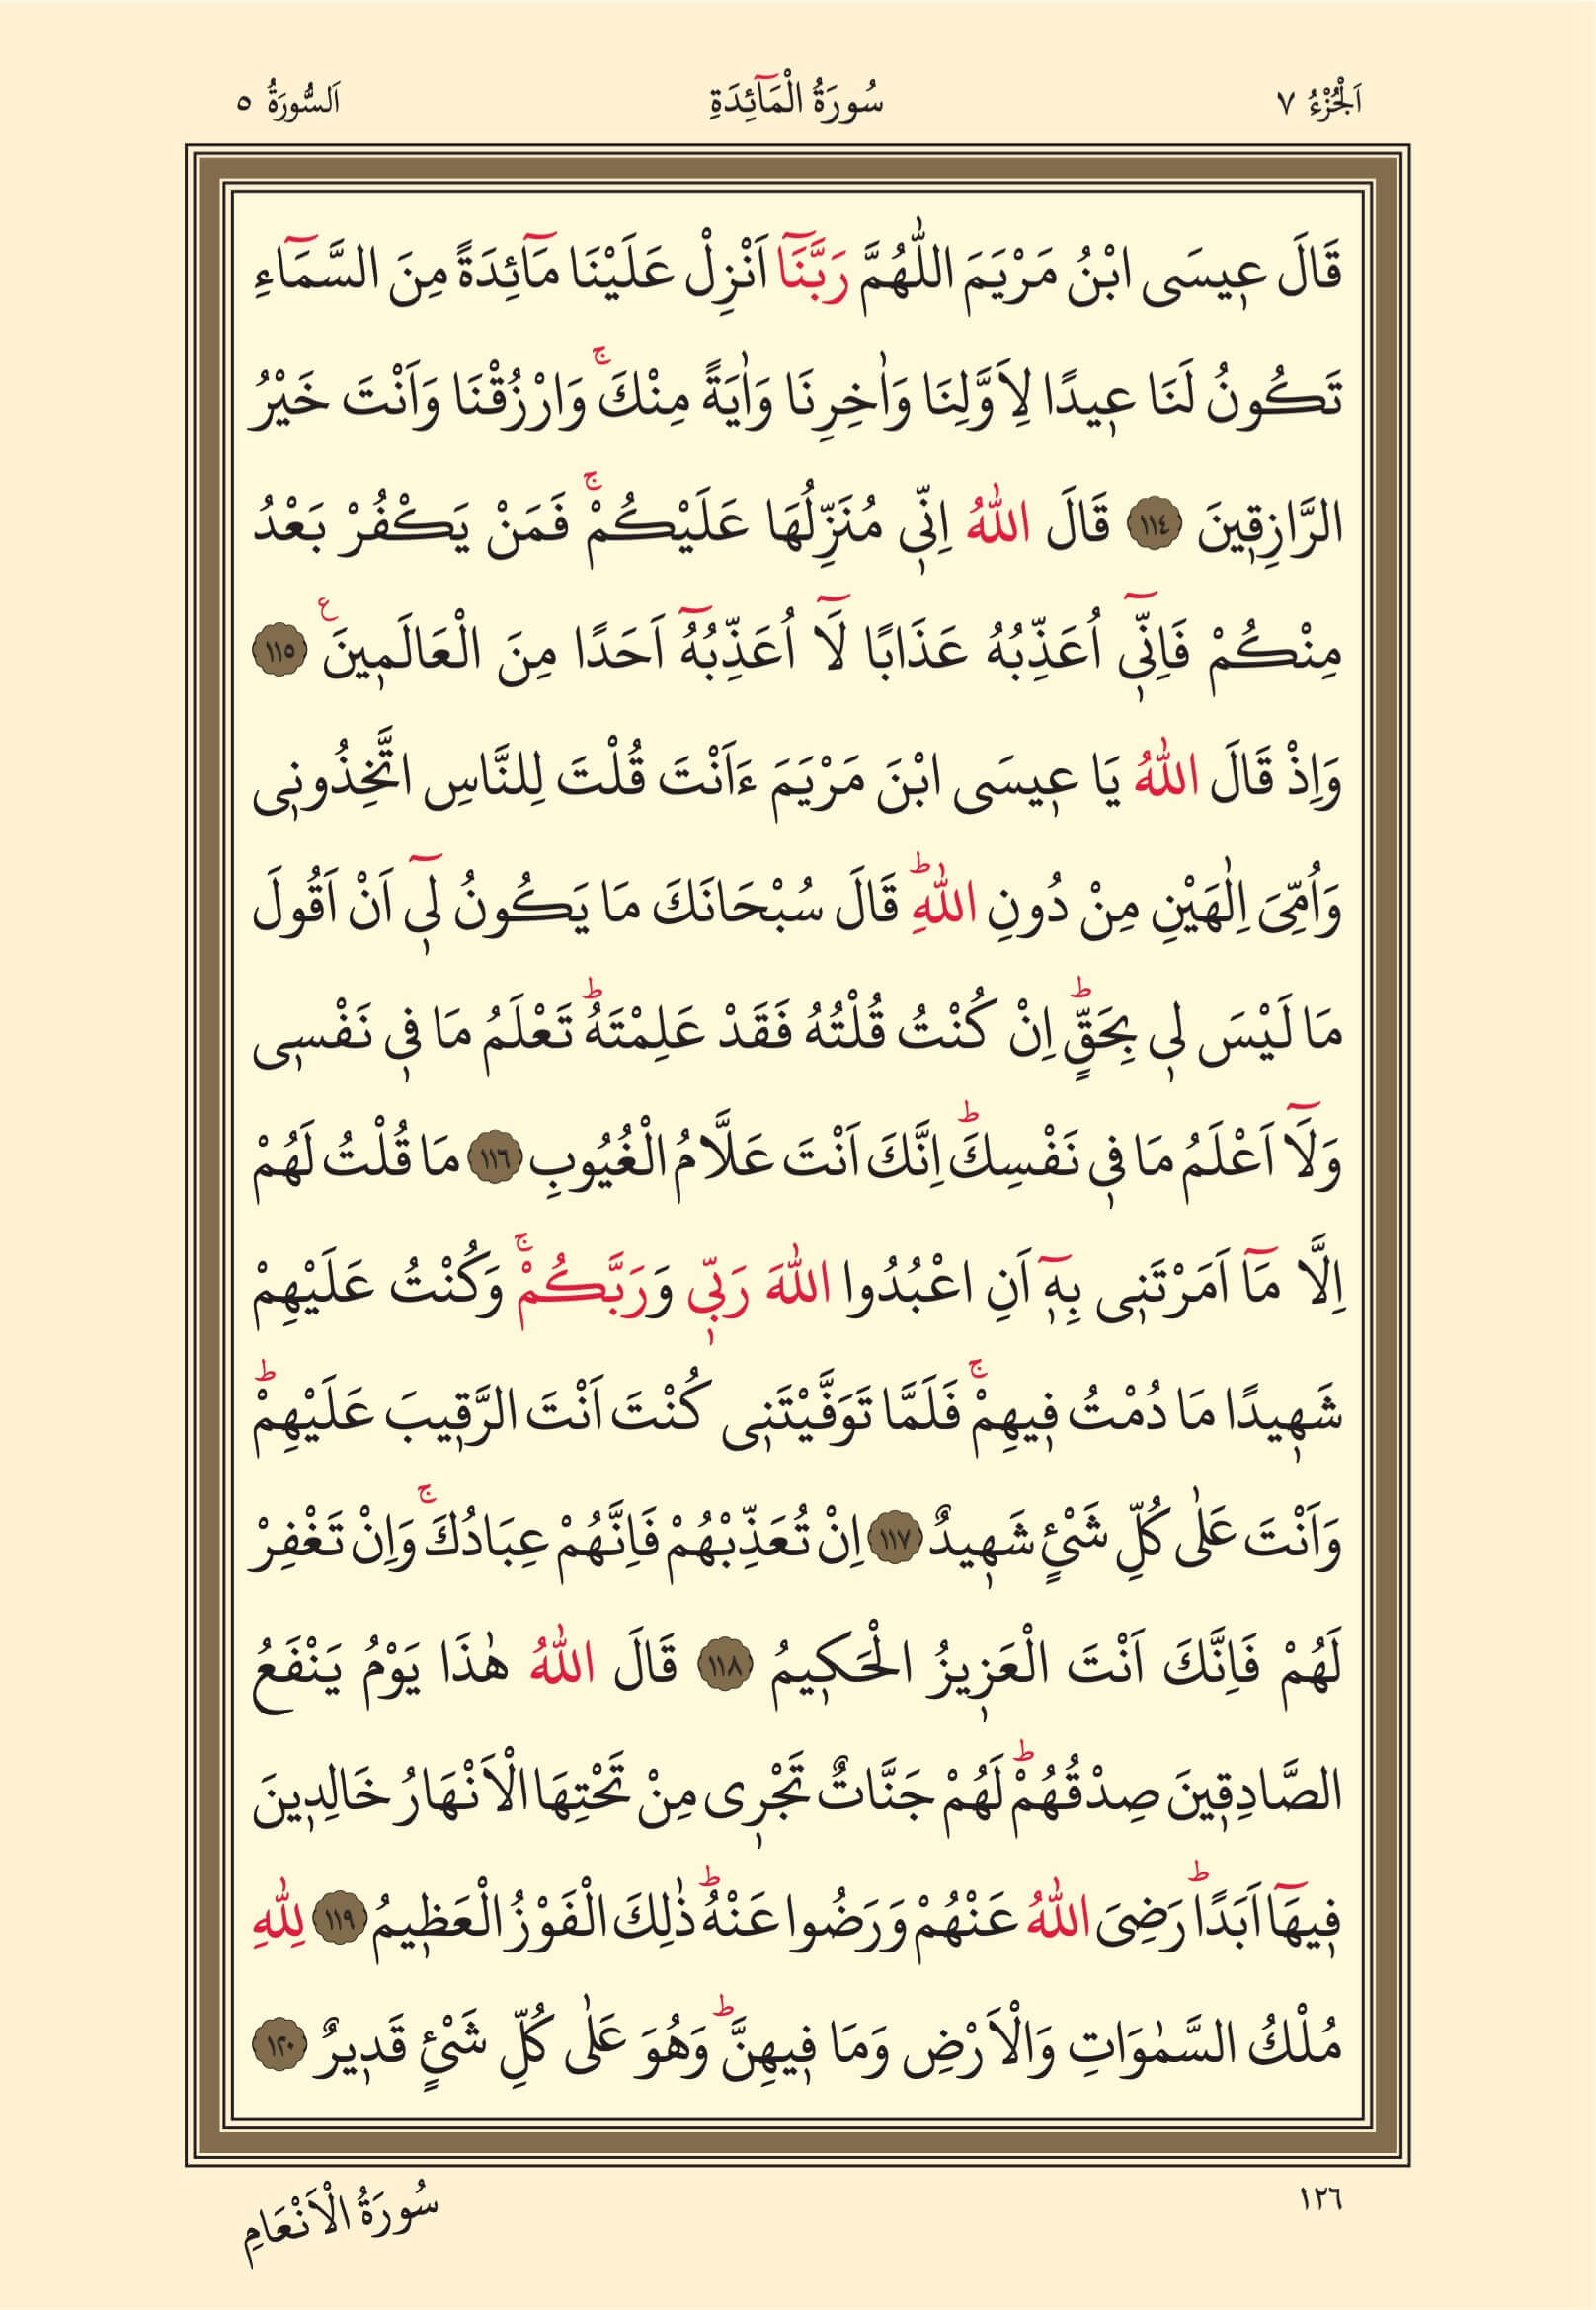 اَلْجُزْءُ ٧ سُورَةُ الْمَٓائِدَةِ اَلسُّورَةُ ٥
قَالَ ع۪يسَى ابْنُ مَرْيَمَ اللّٰهُمَّ رَبَّنَٓا اَنْزِلْ عَلَيْنَا مَٓائِدَةً مِنَ السَّمَٓاءِ
تَكُونُ لَنَا ع۪يدًا لِاَوَّلِنَا وَاٰخِرِنَا وَاٰيَةً مِنْكَۚ وَارْزُقْنَا وَاَنْتَ خَيْرُ
الرَّازِق۪ينَ ١١٤ قَالَ اللّٰهُ اِنّ۪ي مُنَزِّلُهَا عَلَيْكُمْۚ فَمَنْ يَكْفُرْ بَعْدُ
مِنْكُمْ فَاِنّ۪ٓي اُعَذِّبُهُ عَذَابًا لَٓا اُعَذِّبُهُٓ اَحَدًا مِنَ الْعَالَم۪ينَ ع ١١٥
وَاِذْ قَالَ اللّٰهُ يَا ع۪يسَى ابْنَ مَرْيَمَ ءَاَنْتَ قُلْتَ لِلنَّاسِ اتَّخِذُون۪ي
وَاُمِّيَ اِلٰهَيْنِ مِنْ دُونِ اللّٰهِۜ قَالَ سُبْحَانَكَ مَا يَكُونُ ل۪ٓي اَنْ اَقُولَ
مَا لَيْسَ ل۪ي بِحَقٍّۜ اِنْ كُنْتُ قُلْتُهُ فَقَدْ عَلِمْتَهُۜ تَعْلَمُ مَا ف۪ي نَفْس۪ي
وَلَٓا اَعْلَمُ مَا ف۪ي نَفْسِكَۜ اِنَّكَ اَنْتَ عَلَّامُ الْغُيُوبِ ١١٦ مَا قُلْتُ لَهُمْ
اِلَّا مَٓا اَمَرْتَن۪ي بِه۪ٓ اَنِ اعْبُدُوا اللّٰهَ رَبّ۪ي وَرَبَّكُمْۚ وَكُنْتُ عَلَيْهِمْ
شَه۪يدًا مَا دُمْتُ ف۪يهِمْۚ فَلَمَّا تَوَفَّيْتَن۪ي كُنْتَ اَنْتَ الرَّق۪يبَ عَلَيْهِمْۜ
وَاَنْتَ عَلٰى كُلِّ شَيْءٍ شَه۪يدٌ ١١٧ اِنْ تُعَذِّبْهُمْ فَاِنَّهُمْ عِبَادُكَۚ وَاِنْ تَغْفِرْ
لَهُمْ فَاِنَّكَ اَنْتَ الْعَز۪يزُ الْحَك۪يمُ ١١٨ قَالَ اللّٰهُ هٰذَا يَوْمُ يَنْفَعُ
الصَّادِق۪ينَ صِدْقُهُمْۜ لَهُمْ جَنَّاتٌ تَجْر۪ي مِنْ تَحْتِهَا الْاَنْهَارُ خَالِد۪ينَ
ف۪يهَٓا اَبَدًاۜ رَضِيَ اللّٰهُ عَنْهُمْ وَرَضُوا عَنْهُۜ ذٰلِكَ الْفَوْزُ الْعَظ۪يمُ ١١٩ لِلّٰهِ
مُلْكُ السَّمٰوَاتِ وَالْاَرْضِ وَمَا ف۪يهِنَّۜ وَهُوَ عَلٰى كُلِّ شَيْءٍ قَد۪يرٌ ١٢٠
١٢٦ سُورَةُ الْاَنْعَامِ